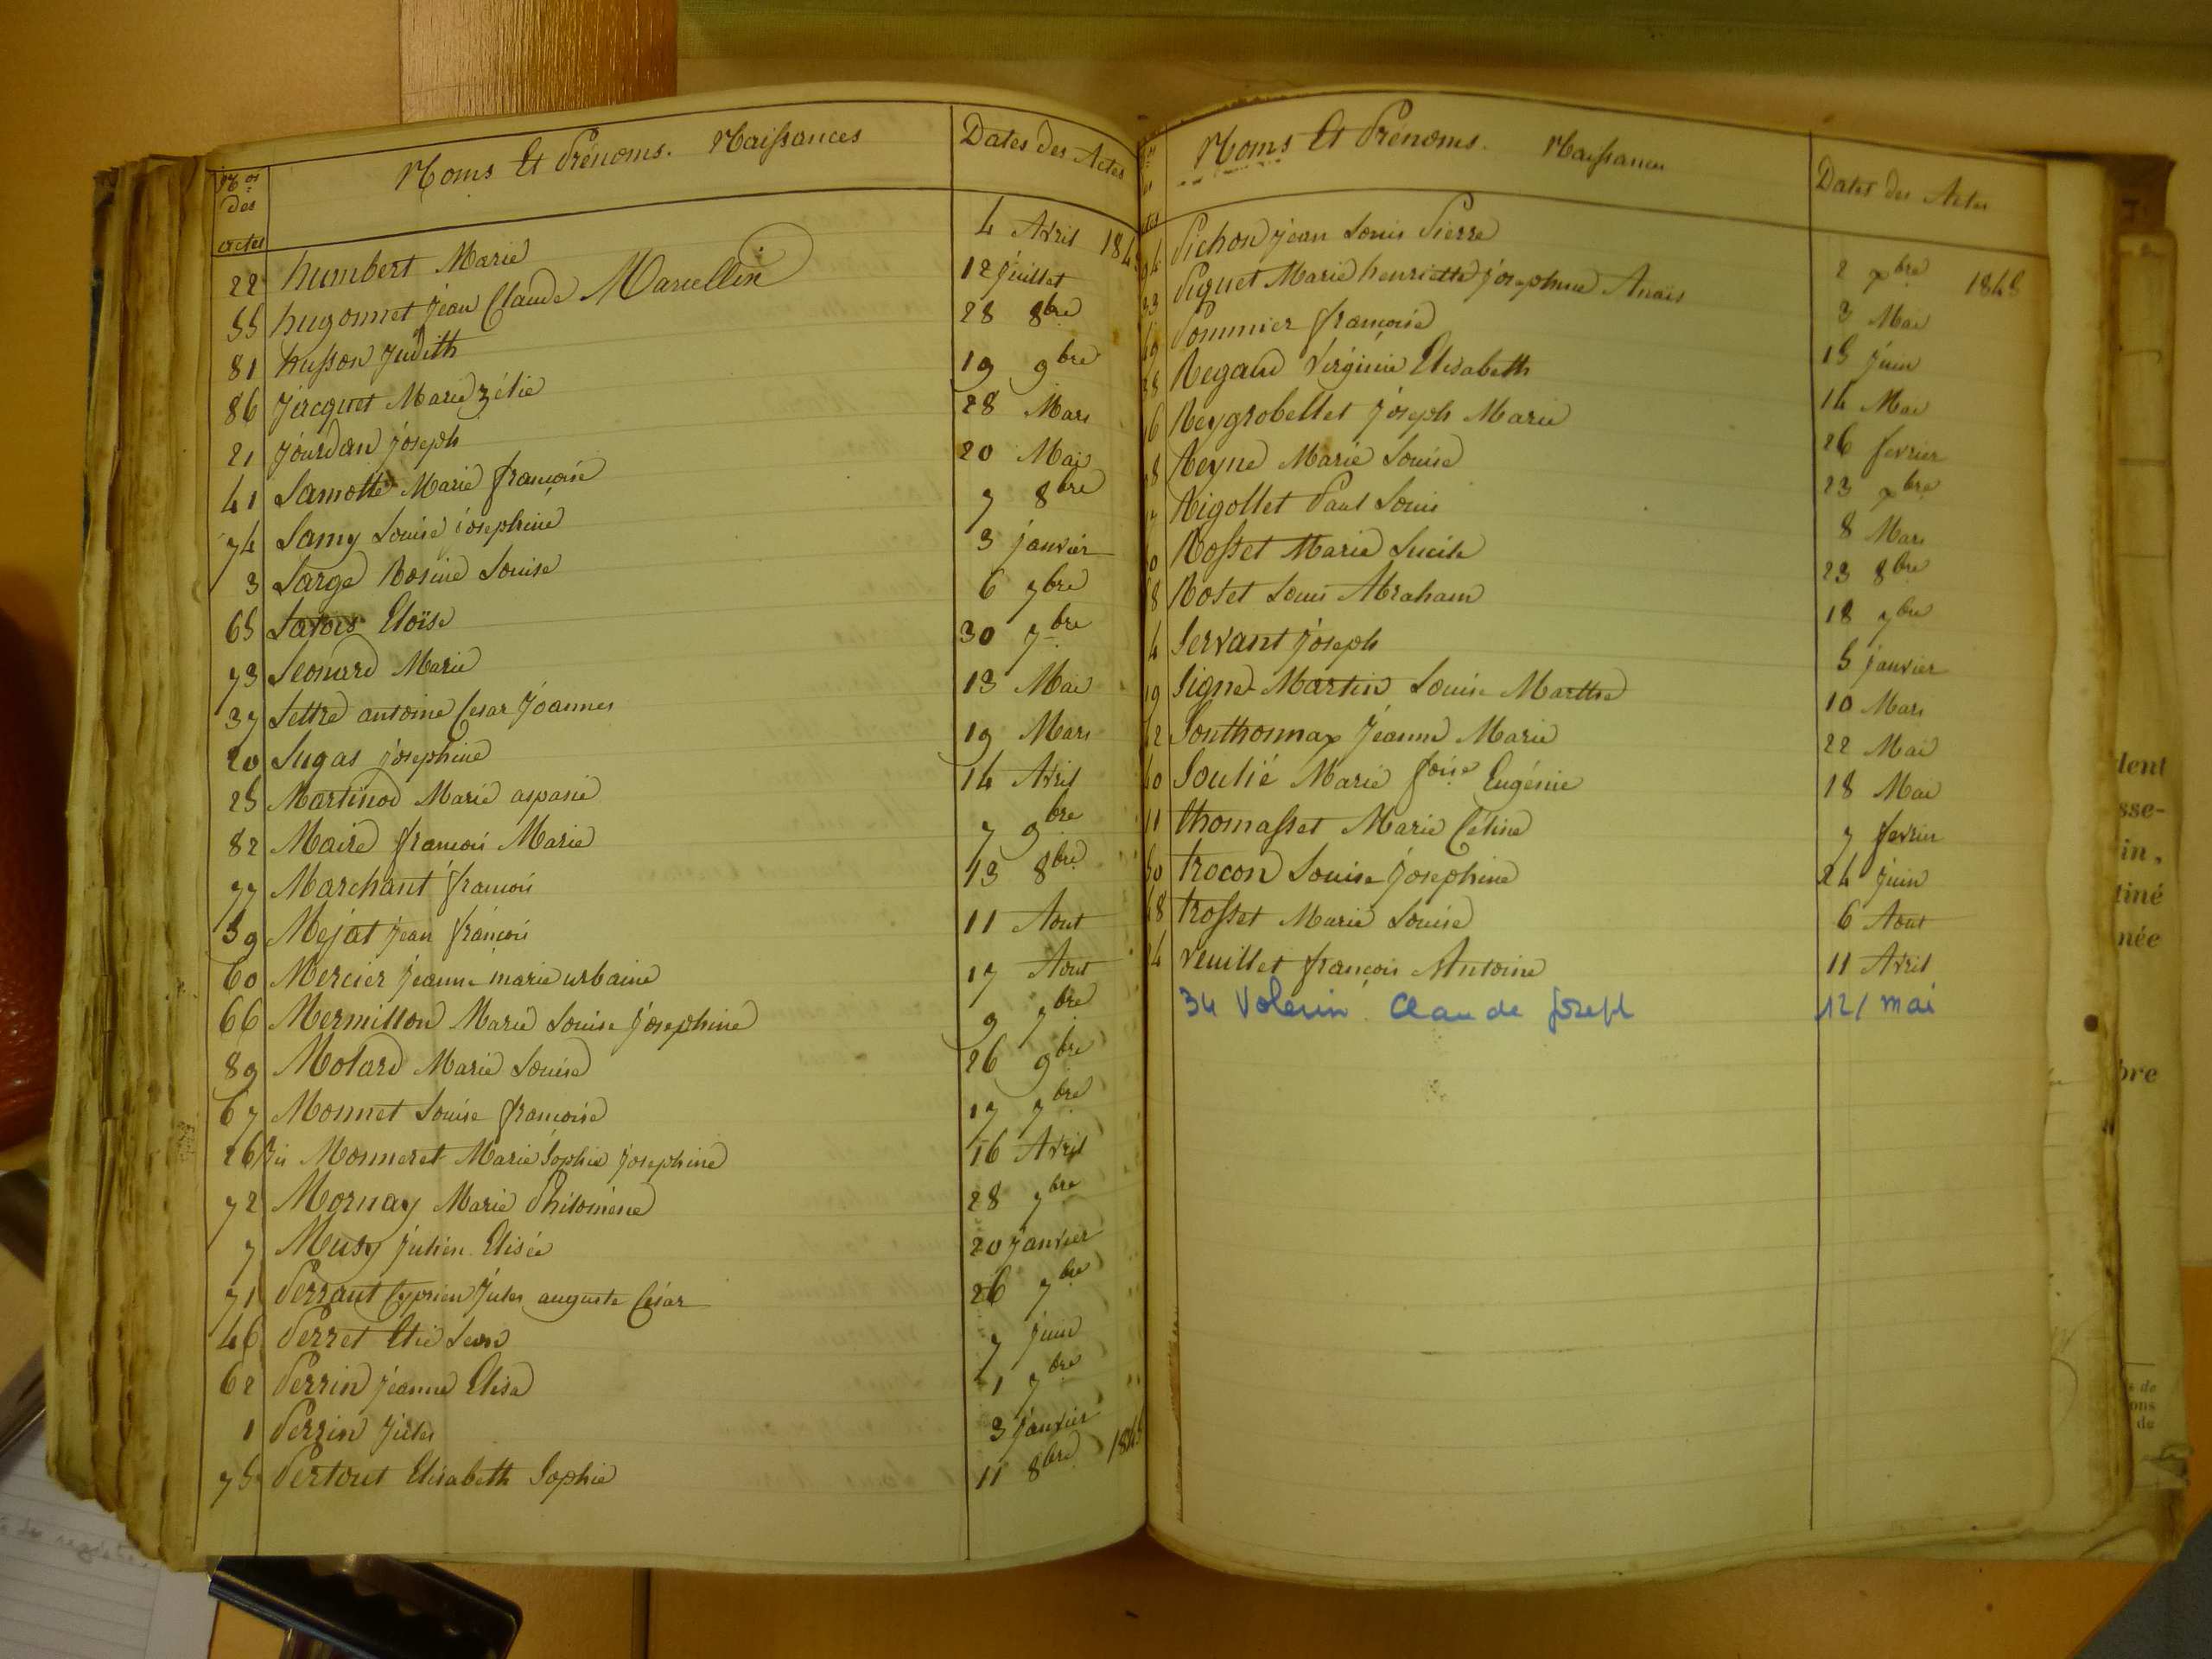 Nos des actes Noms Et Prénoms. Naissances Dates des Actes
22 humbert Marie 4 Avril
55 hugonnet jean Claude Marcellin 12 juillet
81 husson Judith 28 8bre
86 jacquet Marie zélie 19 9bre
21 jourdan joseph 28 Mars
41 Lamotte Marie françoise 20 Mai
74 Lamy Louise josephine 7 8bre
3 Large Rosine Louise 3 janvier
65 Eloïse 6 7bre
73 Leonard Marie 30 7bre
37 Lettre antoine Cesar Joannes 13 Mai
20 Lugas josephine 19 Mars
25 Martinod Marie aspasie 14 Avril
82 Maire françois Marie 7 9bre
77 Marchant françois 13 8bre
59 Mejat jean françois 11 Aout
60 Mercier jeanne marie urbaine 17 Aout
66 Mermillon Marie Louise josephine 9 7bre
89 Molard Marie Louise 26 9bre
67 Monnet Louise françoise 17 7bre
26 Bis Monneret Marie Sophie josephine 16 Avril
72 Mornay Marie Philomène 28 7bre
7 Musy Julien Elisée 20 janvier
71 Perraut Cyprien Jules auguste César 26 7bre
46 Perret Elie Leon 7 juin
62 Perrin jeanne Elisa 1 7bre
1 Perrin Jules 3 janvier
75 Pertout Elisabeth Sophie 11 8bre
Noms Et Prénoms. Naissances Dates des Actes
Pichon jean Louis Pierre 2 xbre 1848
Piquet Marie henriette josephine Anaïs 3 Mai
Pommier françoise 15 juin
Regaud Virginie Elisabeth 14 Mai
Reygrobellet joseph Marie 26 fevrier
Reyne Marie Louise 23 xbre
Rigollet Paul Louis 8 Mars
Rosset Marie Lucile 23 8bre
Roset Louis Abraham 18 7bre
4 Servant joseph 5 janvier
19 Signe Martin Louise Marthe 10 Mars
42 Sonthonnax Jeanne Marie 22 Mai
40 Soulié Marie foise Eugénie 18 Mai
11 thomasset Marie Céline 7 fevrier
50 trocon Louise josephine 24 juin
58 trosset Marie Louise 6 Aout
24 Veuillet françois Antoine 11 Avril
34 Volerin Claude Joseph 12/ mai